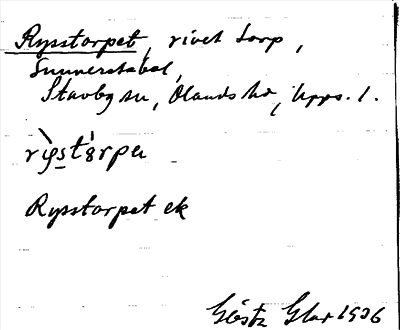 Rysstorpet, rivet torp,
Sunnerstabol,
Stavby sn, Olands hd, Upps. l.
Rysstorpet ek
Gösta Glar 1936